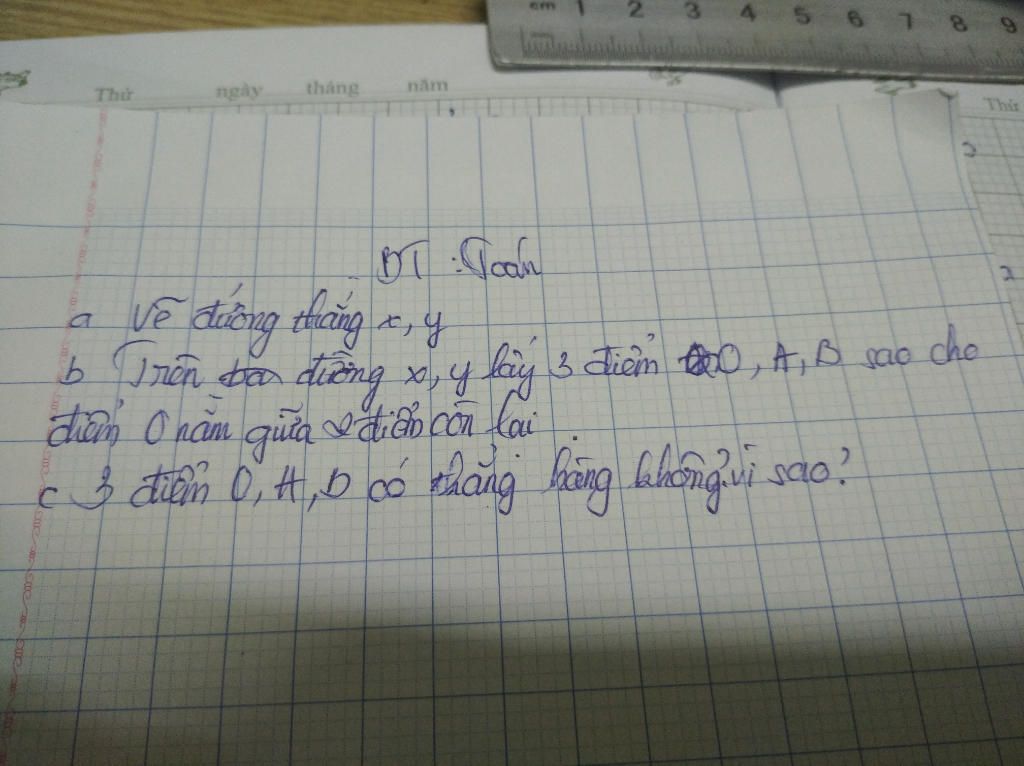 cm 1 2 3 4 5 6 7 8 9
Thứ ngày tháng năm
Thứ
BT : Toán
a Vẽ đường thẳng x, y
b Trên đường x, y lấy 3 điểm O, A, B sao cho
điểm O nằm giữa 2 điểm còn lại
c 3 điểm O, A, B có thẳng hàng không? vì sao?